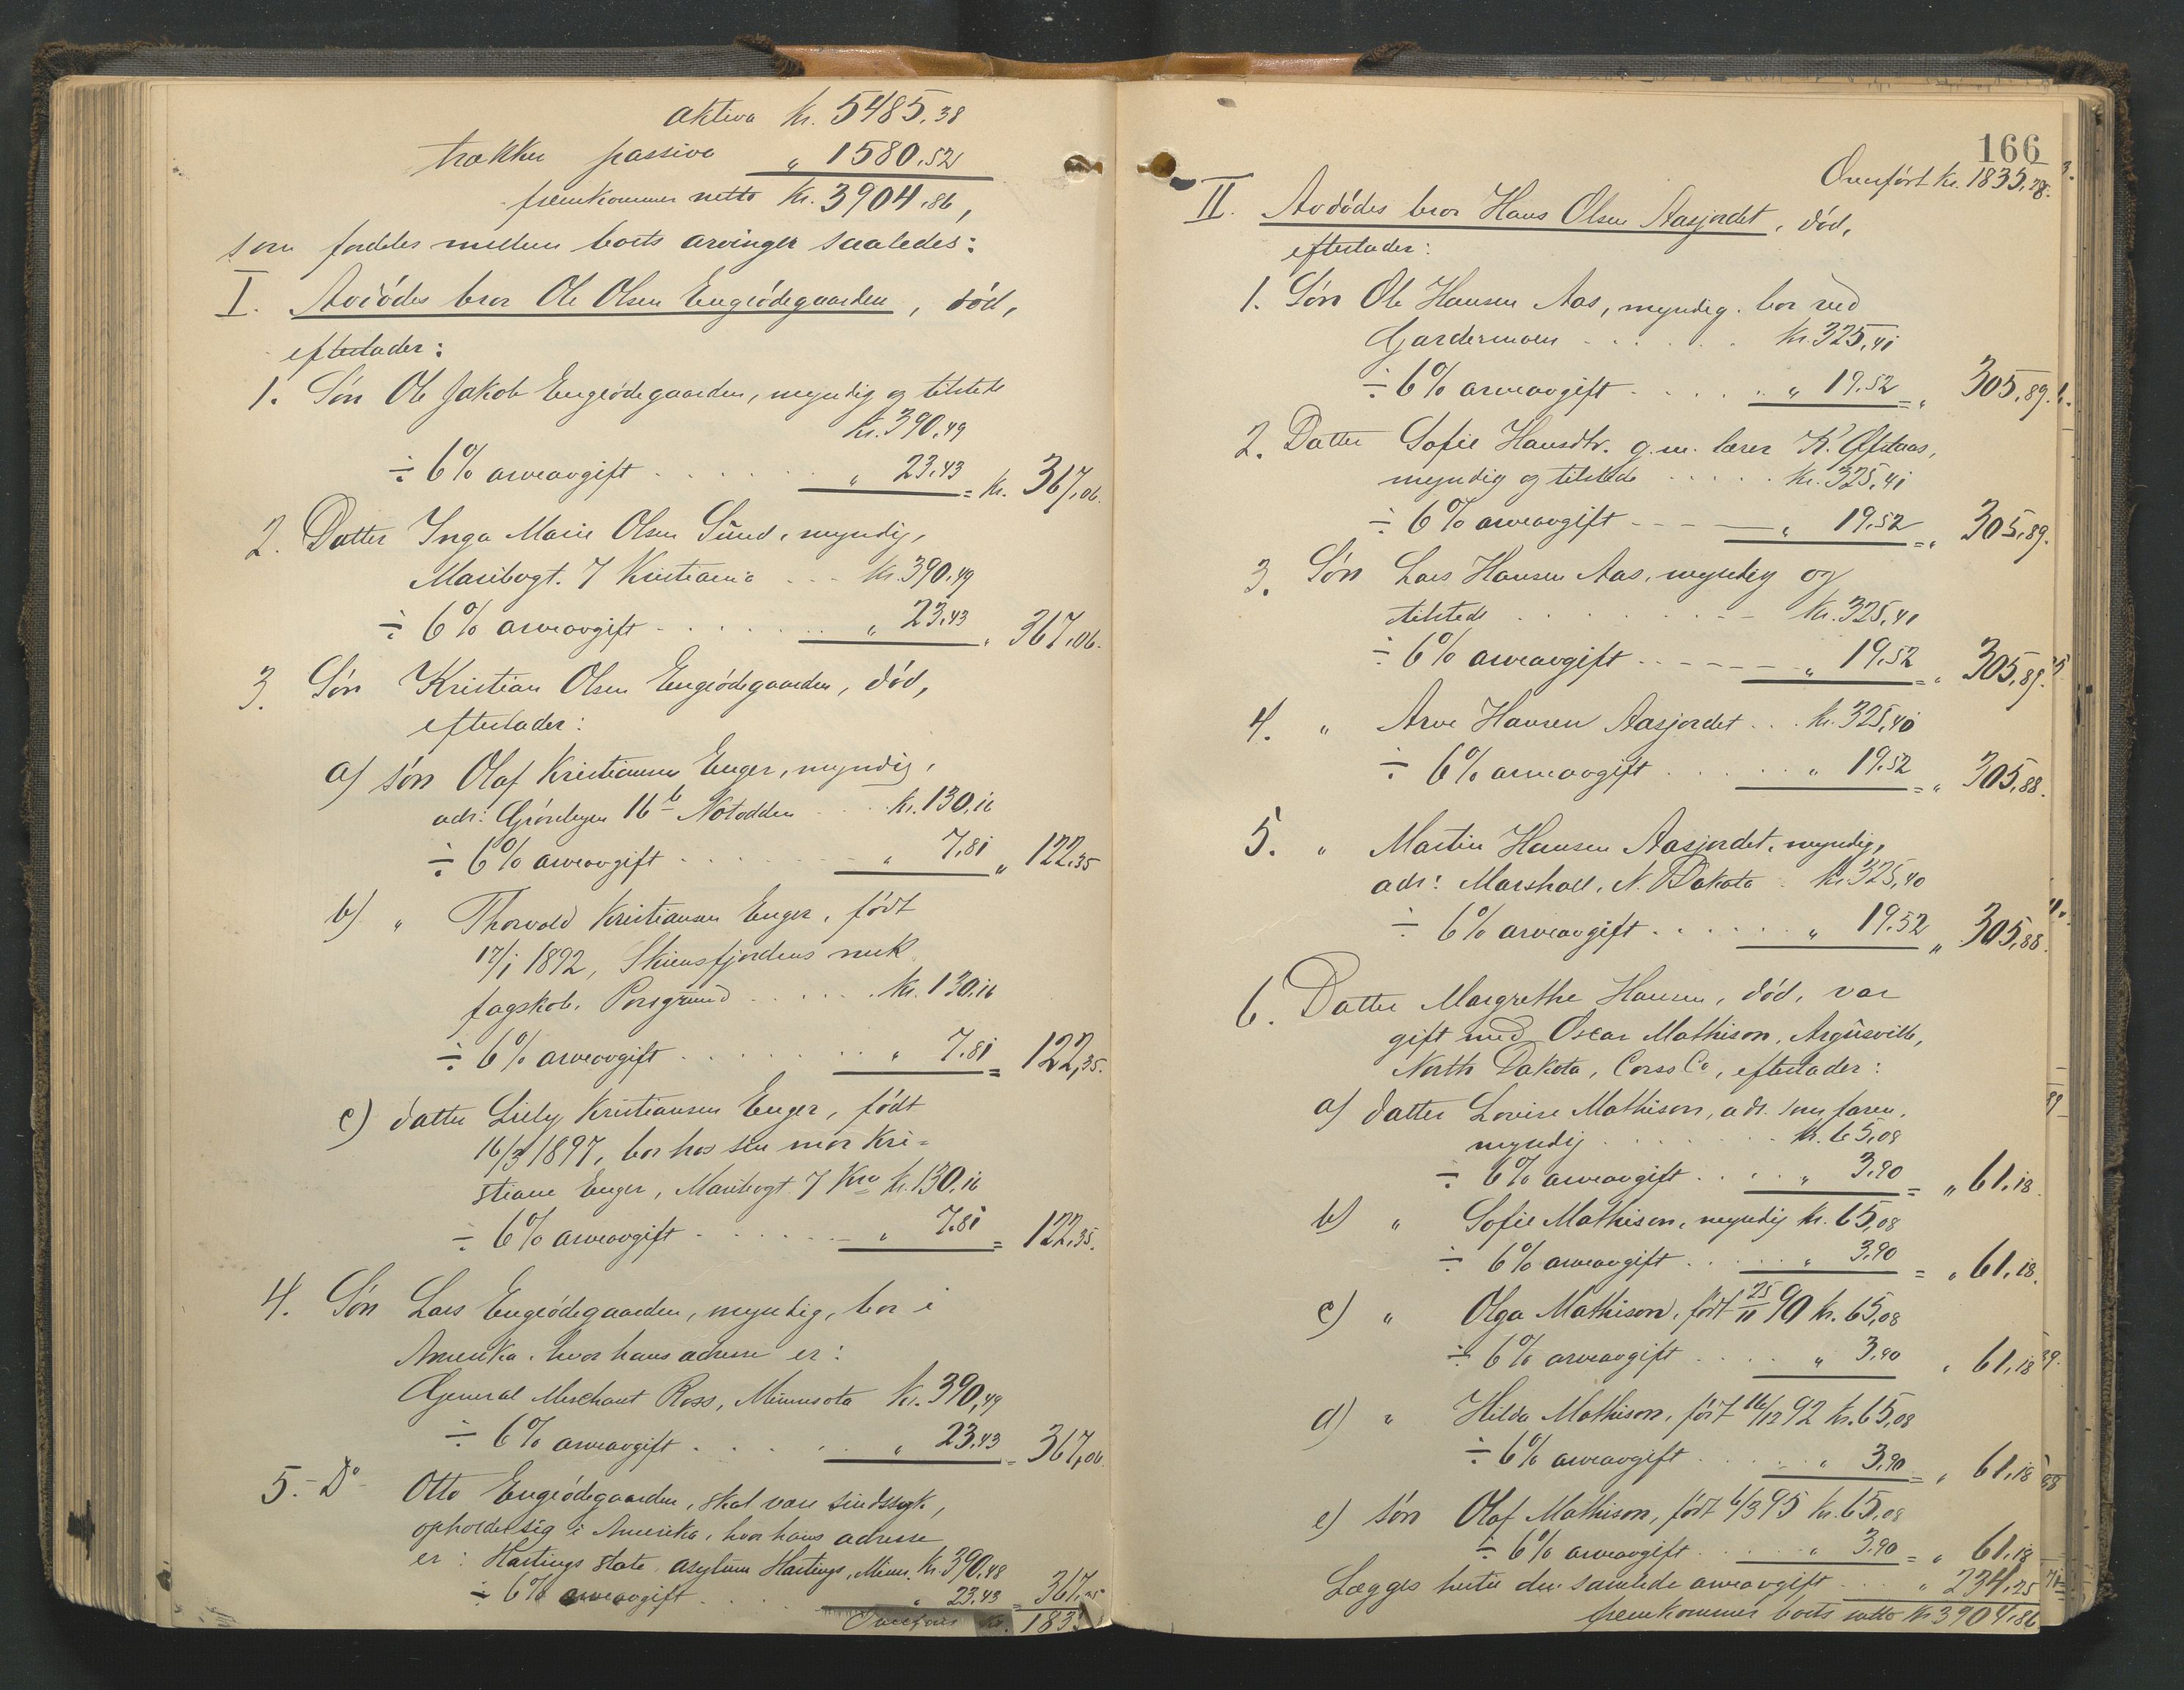 aktiva kr. 5485,38
trækkes passiva " 1580,52
fremkommer netto kr. 3904,86,
som fordeles mellem boets arvinger saaledes:
I. Avdødes bror Ole Olsen Engrødegaarden, død,
efterlader:
1. Søn Ole Jakob Engrødegaarden, myndig og tilstede
kr. 390,49
÷ 6% arveavgift " 23,43 = kr. 367,06.
2. Datter Inga Marie Olsen Sund, myndig,
Maribogt. 7 Kristiania kr. 390,49
÷ 6% arveavgift " 23,43 " 367,06.
3. Søn Kristian Olsen Engrødegaarden, død,
efterlader:
a) søn Olaf Kristiansen Enger, myndig,
adr: Grønbyen 16 b Notodden kr. 130,16
÷ 6% arveavgift " 7,81 " 122,35
b) " Thorvald Kristiansen Enger, født
17/1 1892, Skiensfjordens mek.
fagskole, Porsgrund kr. 130,16
÷ 6% arveavgift " 7,81 = 122,35.
c) datter Lily Kristiansen Enger, født
16/3 1897, bor hos sin mor Kri=
stiane Enger, Maribogt. 7 Kra kr. 130,16
÷ 6% arveavgift " 7,81 = 122,35.
4. Søn Lars Engrødegaarden, myndig, bor i
Amerika, hvor hans adresse er:
General Merchant Ross, Minnesota kr. 390,49
÷ 6% arveavgift " 23,43 = 367,06.
5. Do Otto Engrødegaarden, skal være sindssyk,
opholder sig i Amerika, hvor hans adresse
er: Hastings State asylum Hastings, Minn. kr. 390,48
÷ 6% arveavgift " 23,43 = 367,05
Overføres kr. 183
166
Overført kr. 1835,28.
II. Avdødes bror Hans Olsen Aasjordet, død,
efterlader:
1. Søn Ole Hansen Aas, myndig, bor ved
Gardermoen kr. 325,41
÷ 6% arveavgift " 19,52 = " 305,89.
2. Datter Sofie Hansdtr. g.m. lærer K. Ofstaas,
myndig og tilstede kr. 325,41
÷ 6% arveavgift " 19,52 = " 305,89.
3. Søn Lars Hansen Aas, myndig og
tilstede kr. 325,41
÷ 6% arveavgift " 19,52 = " 305,89.
4. " Arve Hansen Aasjordet kr. 325,40
÷ 6% arveavgift " 19,52 = " 305,88.
5. " Martin Hansen Aasjordet, myndig,
adr: Marshall, N. Dakota kr. 325,40
÷ 6% arveavgift " 19,52 " 305,88.
6. Datter Margrethe Hansen, død, var
gift med Oscar Mathison, Argusville,
North Dakota, Corss Co, efterlader:
a) datter Lovise Mathison, adr. som faren,
myndig kr. 65,08
÷ 6% arveavgift " 3,90 = " 61,18.
b) " Sofie Mathison, myndig kr. 65,08
÷ 6% arveavgift " 3,90 = " 61,18.
c) " Olga Mathison, født 25/11 90 kr. 65,08
÷ 6% arveavgift " 3,90 " 61,18
d) " Hilda Mathison, født 16/12 92 kr. 65,08
÷ 6% arveavgift " 3,90 = " 61,18
e) søn Olaf Mathison, født 6/3 95 kr. 65,08
÷ 6% arveavgift " 3,90 = " 61,18
Lægges hertil den samlede arveavgift " 234,25
fremkommer boets netto kr 3904,86